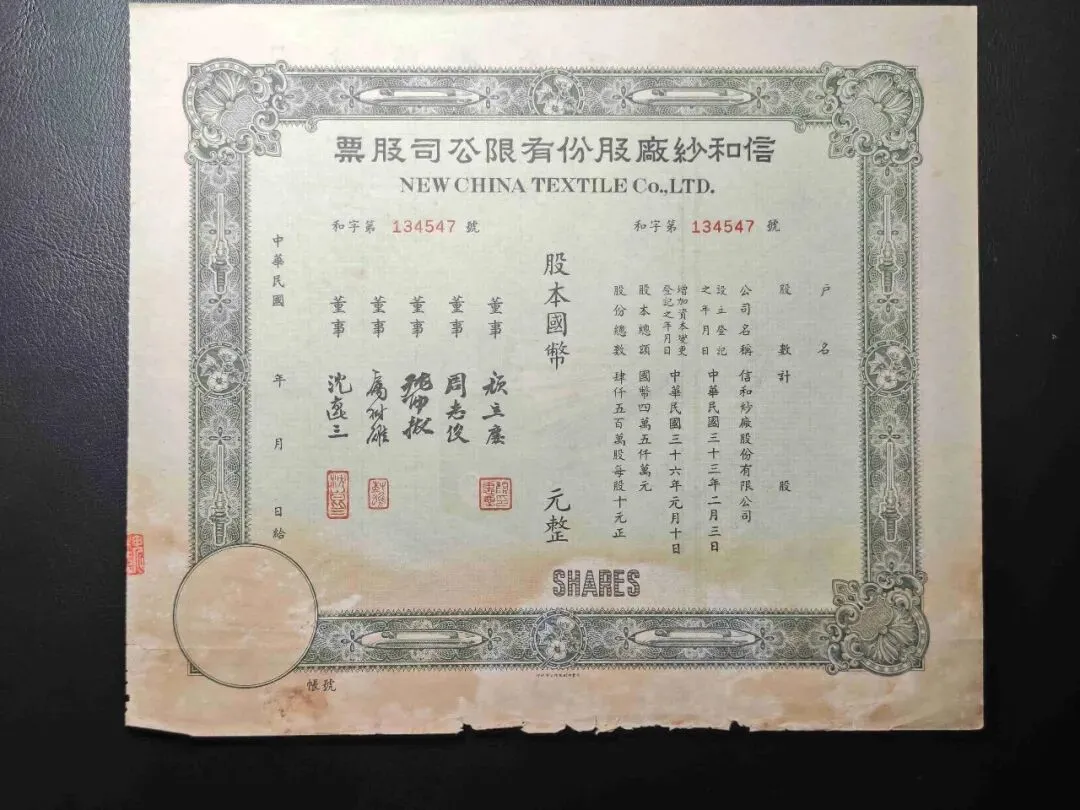 信和紗廠股份有限公司股票
NEW CHINA TEXTILE Co.,LTD.
和字第 134547 號
和字第 134547 號
户名
股數計 股
公司名稱 信和紗廠股份有限公司
設立登記之年月日 中華民國三十三年二月三日
增加資本變更登記之年月日 中華民國三十六年元月十日
股本總額 國幣四萬五仟萬元
股份總數 肆仟五百萬股每股十元正
股本國幣 元整
董事
董事 周志俊
董事
董事
董事 沈遠三
中華民國 年 月 日給
SHARES
帳號